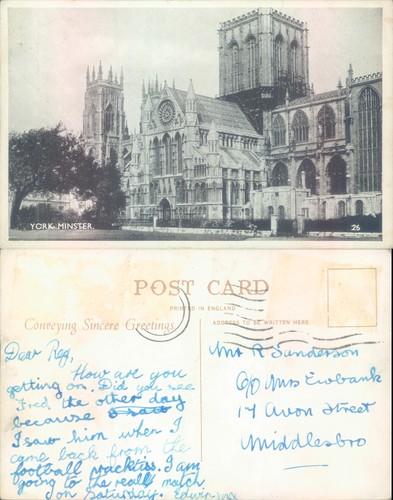 YORK MINSTER.
26
POST CARD
PRINTED IN ENGLAND
Conveying Sincere Greetings
ADDRESS TO BE WRITTEN HERE
Dear Reg,
How are you
getting on. Did you see
Fred the other day
because
I saw him when I
came back from the
football practiss. I am
going to the really match
on Saturday. Edwin
Mr R Sunderson
C/o Mrs Ewbank
17 Avon Street
Middlesbro